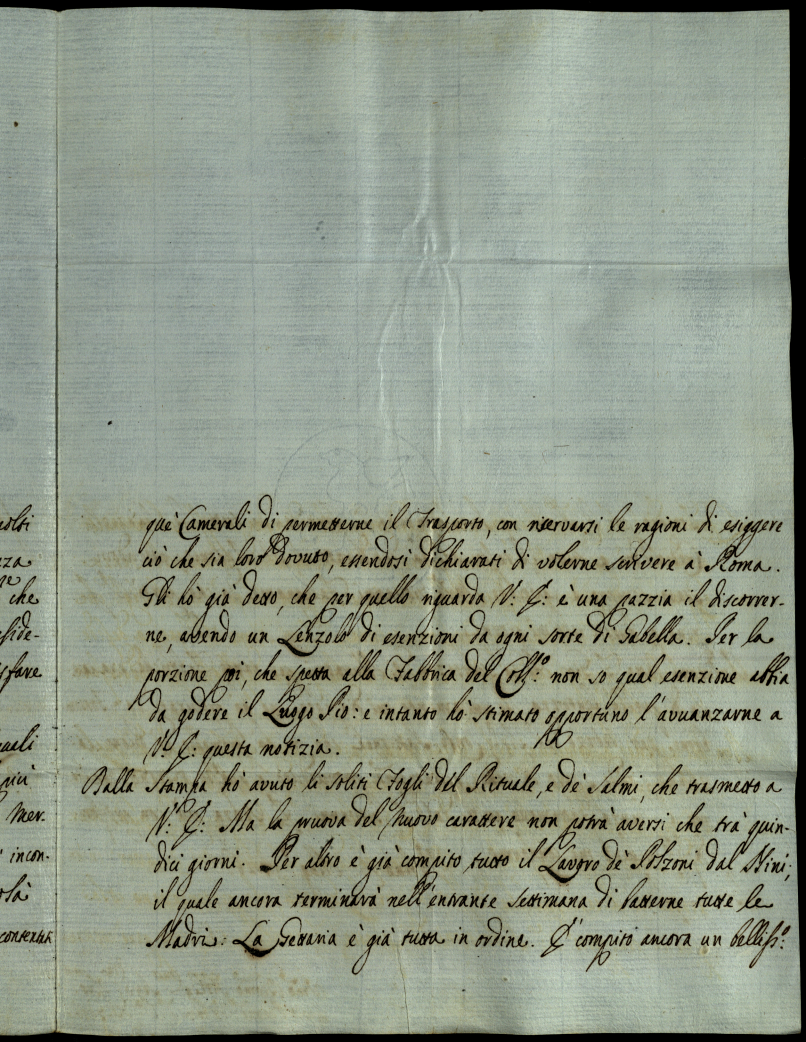 colti
zza
ne
che
eside-
isfare
quali
più
Mer.
i incon-
contentia
que' Camerali di permetterne il Trasporto, con riservarsi le ragioni di esiggere
ciò che sia loro dovuto, essendosi dichiarati di volerne scrivere à Roma.
Gli hò già detto, che per quello riguarda V: E: è una pazzia il discorrer-
ne, avendo un Lenzolo di esenzioni da ogni sorte di Gabella. Per la
porzione poi, che spetta alla Fabbrica del Coll:º non so qual esenzione abbia
da godere il Luogo Pio: e intanto hò stimato opportuno l'avvanzarne a
V: E: questa notizia.
Dalla Stampa hò avuto li soliti Fogli del Rituale, e dè Salmi, che trasmetto a
V: E: Ma la pruova del nuovo carattere non potrà aversi che trà quin-
dici giorni. Per altro è già compito tutto il Lavoro dè Polzoni dal Nini;
il quale ancora terminarà nell'entrante Settimana di batterne tutte le
Madri: La Gettaria è già tutta in ordine. E' compito ancora un bellissº: